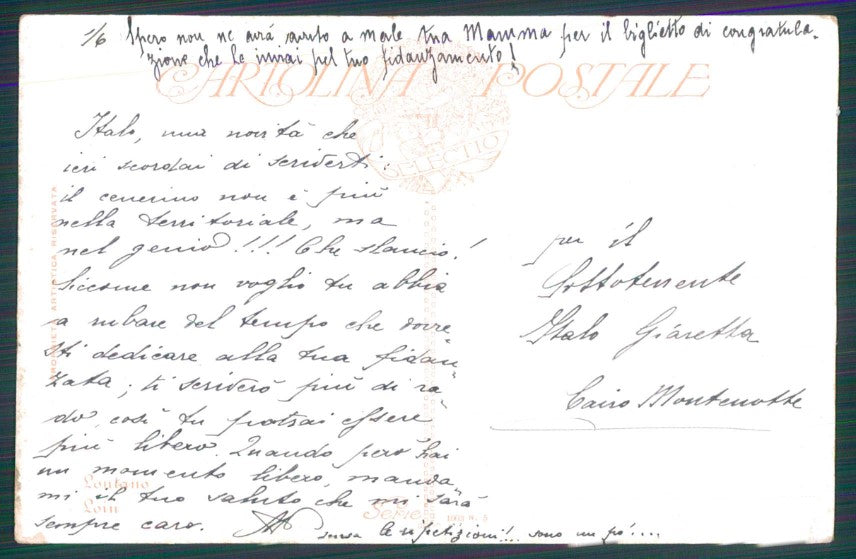 1/6 Spero non ne avrà avuto a male tua Mamma per il biglietto di congratula-
zione che le inviai pel tuo fidanzamento!
CARTOLINA POSTALE
SELECTIO
Italo, una novità che
ieri scordai di scriverti:
il cenerino non è più
nella territoriale, ma
nel genio!!! Che slancio!
Siccome non voglio tu abbia
a rubare del tempo che dovre
sti dedicare alla tua fidan
zata; ti scriverò più di ra
do, così tu potrai essere
più libero. Quando però hai
un momento libero, manda
mi il tuo saluto che mi sarà
sempre caro.
scusa le ripetizioni!... sono un pó....
per il
Sottotenente
Italo Giaretta
Cairo Montenotte
PROPRIETÀ ARTISTICA RISERVATA
Lontano
Loin
Serie